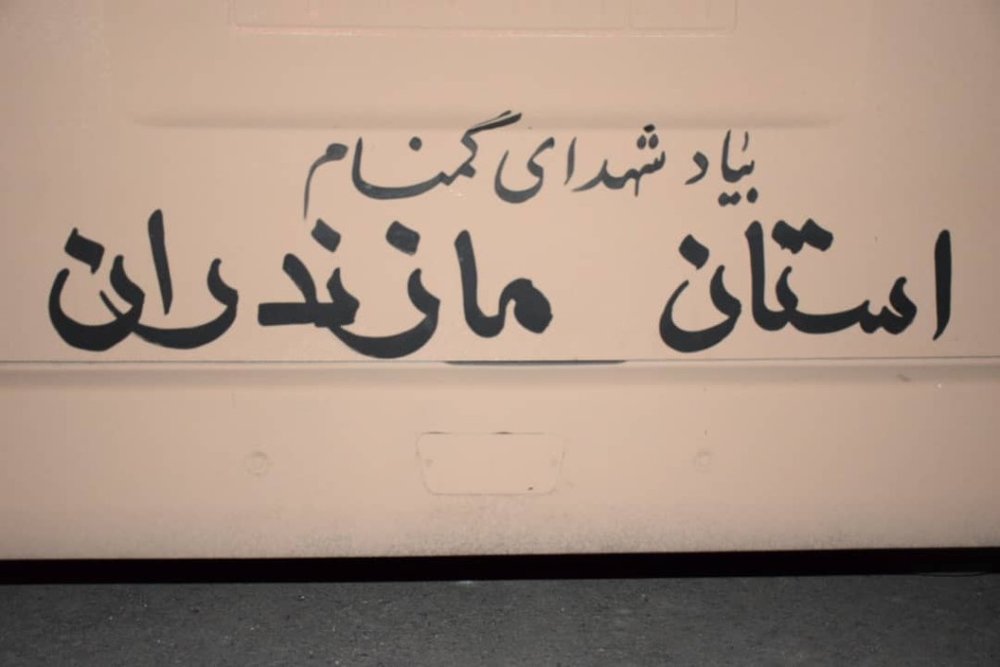 بیاد شهدای گمنام
استان مازندران